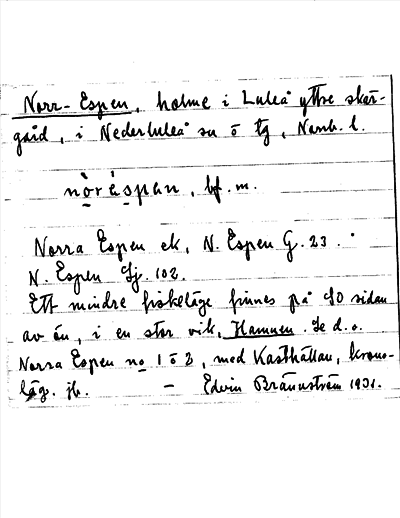 Norr-Espen, holme i Luleå yttre skär-
gård, i Nederluleå sn o tg, Norrb. l.
nòráspan, bf. m.
Norra Espen ek, N. Espen G. 23.
N. Espen Sj. 102.
Ett mindre fiskeläge finnes på SO sidan
av ön, i en stor vik, Hamnen. Se d. o.
Norra Espen no 1 o 2, med Kasthällan, krono-
läg. jb. – Edvin Brännström 1931.